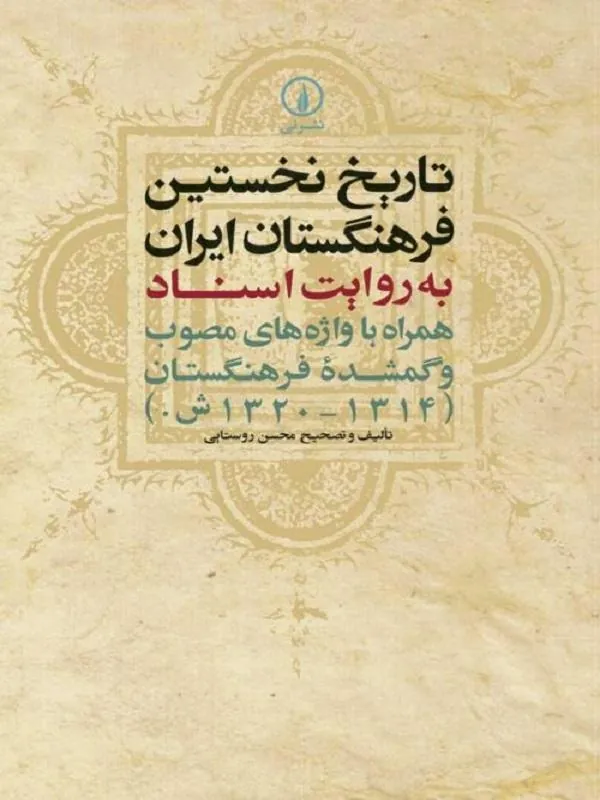 نشرنی
تاریخ نخستین
فرهنگستان ایران
به روایت اسناد
همراه با واژه‌های مصوب
و گمشدهٔ فرهنگستان
(۱۳۱۴ – ۱۳۲۰ ش.)
تألیف و تصحیح محسن روستایی